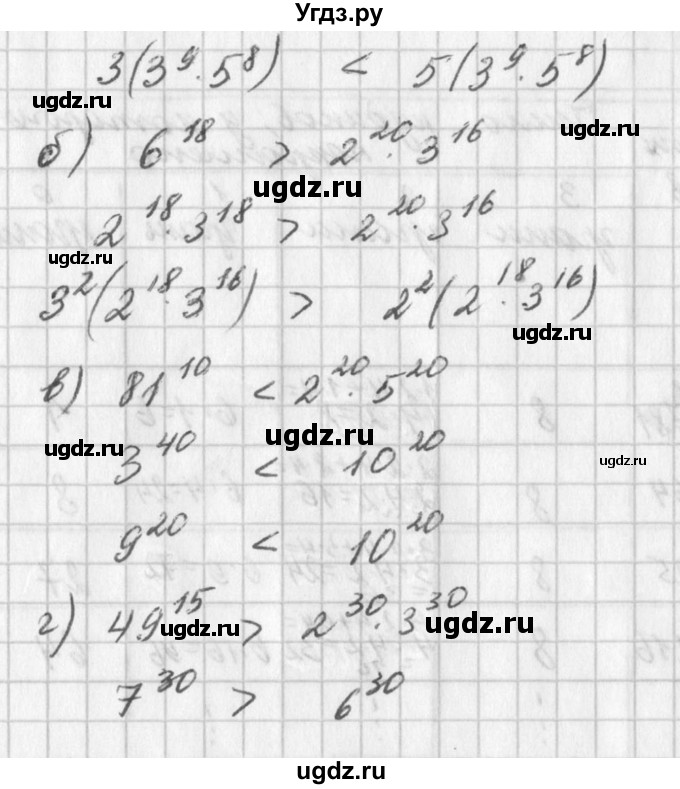 Угдз.ру
3(3⁹·5⁸) < 5(3⁹·5⁸)
ugdz.ru
ugdz.ru
б) 6¹⁸ > 2²⁰·3¹⁶
ugdz.ru
2¹⁸·3¹⁸ > 2²⁰·3¹⁶
ugdz.ru
3²(2¹⁸·3¹⁶) > 2²(2¹⁸·3¹⁶)
ugdz.ru
в) 81¹⁰ < 2²⁰·5²⁰
ugdz.ru
ugdz.ru
3⁴⁰ < 10²⁰
ugdz.ru
9²⁰ < 10²⁰
г) 49¹⁵ > 2³⁰·3³⁰
ugdz.ru
ugdz.ru
7³⁰ > 6³⁰
ugdz.ru
ugdz.ru